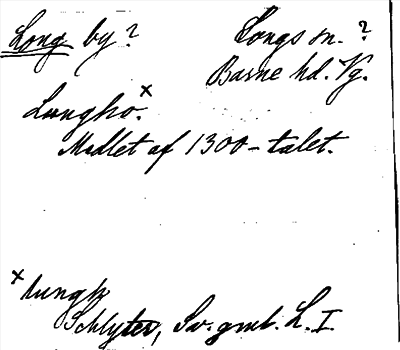 Long by? Longs sn. ?
Barne hd. Vg.
Lungho.x
Medlet af 1300-talet.
x lungh
Schlyter, Sv. gml. L. I.